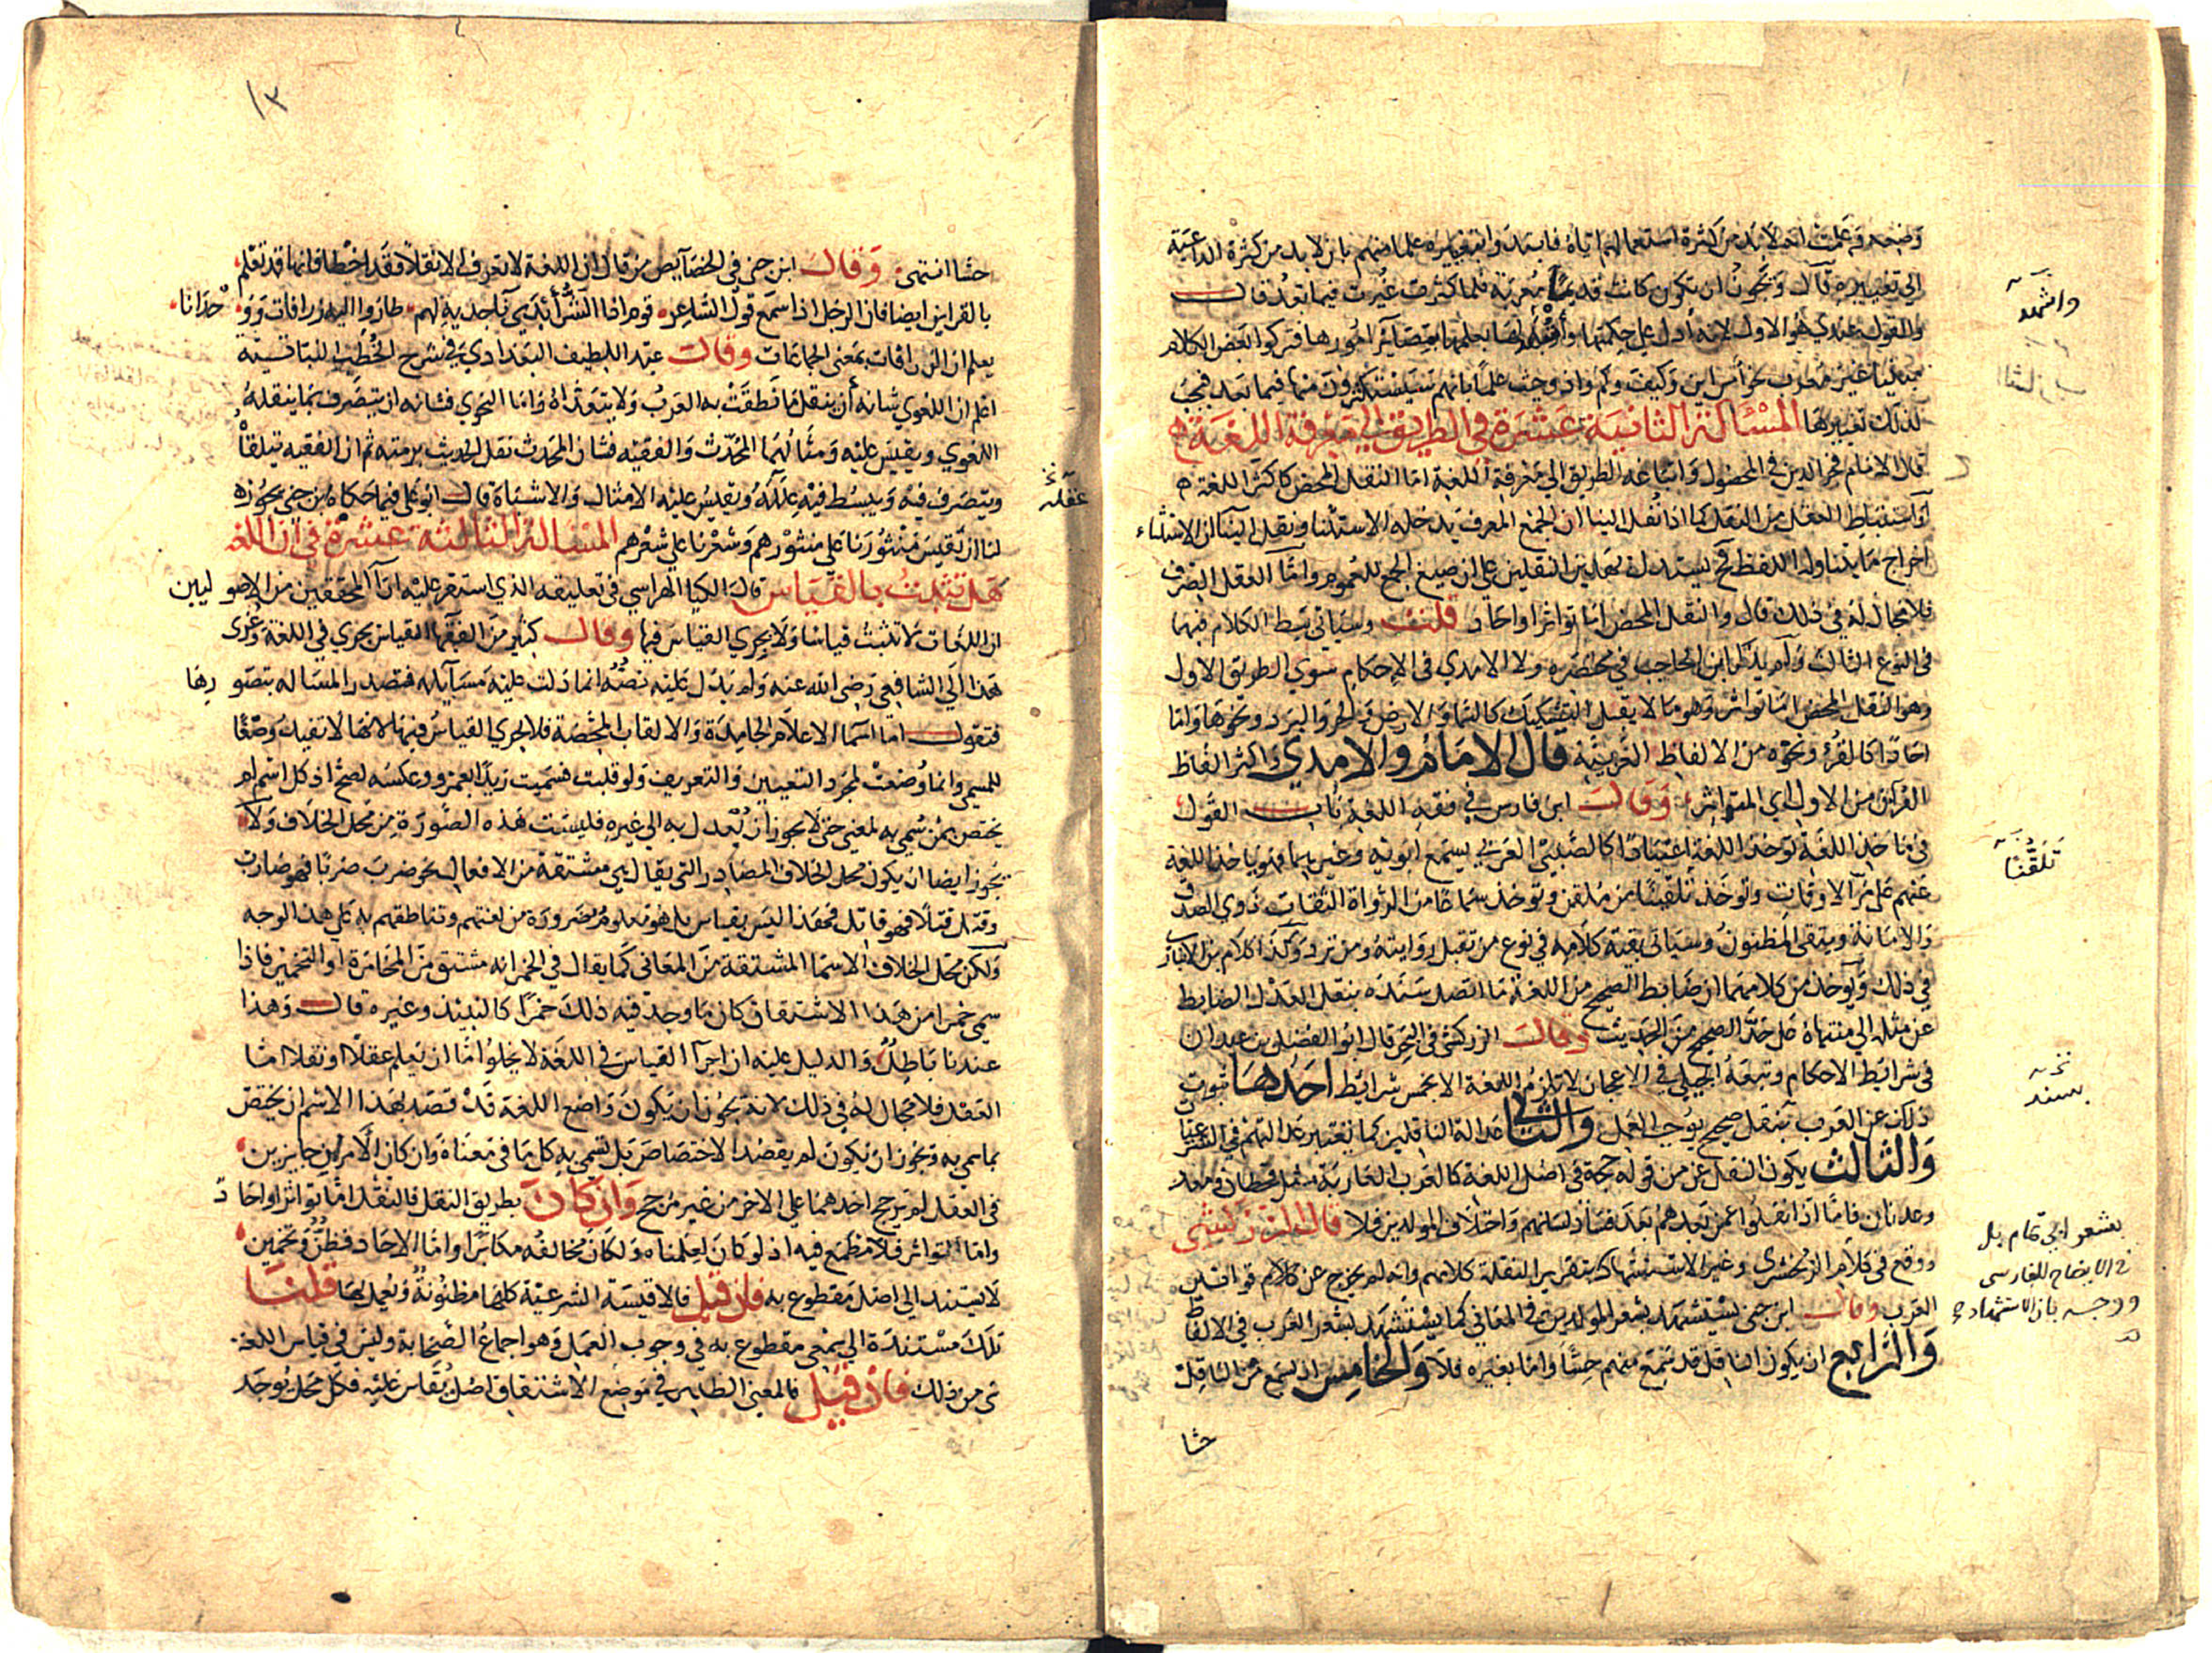 وضعه وعلمت انه لابد من كثرة استعمالهم اياه فابتدوا بتغييره علما منهم بان لابد من كثرة الداعية
الى تغييره قال ويجوز ان تكون كانت قديما معربة فلما كثرت غيرت فيما بعد قال
والقول عندي هو الاول لانه أدل على حكمتها وأشهد لها بعلمها بمصاير امورها فتركوا بعض الكلام
مبنيا غير معرب نحو أمس اين وكيف وكم واذ وحيث علما بانهم سيستكثرون منها فيما بعد فيجب
لذلك تغييرها المسألة الثانية عشرة في الطريق الى معرفة اللغة
قال الامام فخر الدين في المحصول واتباعه الطريق الى معرفة اللغة اما النقل المحض كاكثر اللغة
أو استنباط العقل من النقل كما اذا نقل الينا ان الجمع المعرف يدخله الاستثنا ونقل الينا ان الاستثناء
اخراج ما يتناوله اللفظ فح يستدل بهذين النقلين على ان صيغ الجمع للعموم واما العقل الصرف
فلا مجال له في ذلك قال والنقل المحض اما تواتر او احاد قلت وسياتي بسط الكلام فيهما
في النوع الثالث ولم يذكر ابن الحاجب في مختصره ولا الامدي في الاحكام سوى الطريق الاول
وهو النقل المحض اما تواتر وهو ما لا يقبل التشكيك كالسما والارض والحر والبرد ونحوها واما
احادا كالقرء ونحوه من الالفاظ العربية قال الامام والامدي واكثر الفاظ
القرآن من الاول اي المتواتر وقال ابن فارس في فقه اللغة باب القول
في ماخذ اللغة توخذ اللغة اعتيادا كالصبي العربي يسمع ابويه وغيرهما فهو ياخذ اللغة
عنهم على مر الاوقات وتوخذ تلقينا من ملقن وتوخذ سماعا من الرواة الثقات ذوي الصدق
والامانة ويتقى المظنون وسياتي بقية كلامه في نوع من تقبل روايته ومن ترد وكذا كلام بن الانباري
في ذلك ويؤخذ من كلامهما ان ضابط الصحيح من اللغة ما اتصل سنده بنقل العدل الضابط
عن مثله الى منتهاه على حد الصحيح من الحديث وقال الزركشي في البحر قال ابو الفضل بن عبدان
في شرائط الاحكام وتبعه الجيلي في الاعجاز لا تلزم اللغة الا بخمس شرائط احدها ثبوت
ذلك عن العرب بنقل صحيح يوجب العمل والثاني عدالة الناقلين كما تعتبر عدالتهم في الشرعيات
والثالث يكون النقل عن من قوله حجة في اصل اللغة كالعرب العاربة مثل قحطان ومعد
وعدنان فاما اذا نقلوا عمن بعدهم بعد فساد لسانهم واختلاف المولدين فلا قال الزركشي
ووقع في كلام الزمخشري وغيره الاستشهاد بتقرير النقلة كلامهم وانه لم يخرج عن كلام قوانين
العرب وقال ابن جني يستشهد بشعر المولدين في المعاني كما يستشهد بشعر العرب في الالفاظ
والرابع ان يكون الناقل قد سمع منهم حسا واما بغيره فلا والخامس ان يسمع من الناقل
حسا
واشهد
تلقنا
بسند
بشعر ابي تمام بل
في الايضاح للفارسي
ووجه بان الاستشهاد
١٣
حسا انتهى وقال ابن جني في الخصايص من قال ان اللغة لا تعرف الا نقلا فقد اخطا فانها قد تعلم
بالقراين ايضا فان الرجل اذا سمع قول الشاعر قوم اذا الشر أبدى ناجذيه لهم طاروا اليه زرافات ووحدانا
يعلم ان الزرافات بمعنى الجماعات وقال عبد اللطيف البغدادي في شرح الخطب النباتية
اعلم ان اللغوي شانه أن ينقل ما نطقت به العرب ولا يتعداه واما النحوي فشانه ان يتصرف بما ينقله
اللغوي ويقيس عليه ومثالهما المحدث والفقيه فشان المحدث نقل الحديث برمته ثم ان الفقيه يتلقاه
ويتصرف فيه ويبسط فيه علله ويقيس عليه الامثال والاشباه قال ابو علي فيما حكاه بن جني يجوز
لنا ان نقيس منثورنا على منثورهم وشعرنا على شعرهم المسالة الثالثة عشرة في ان اللغة
هل تثبت بالقياس قال الكيا الهراسي في تعليقه الذي استقر عليه آراء المحققين من الاصوليين
ان اللغات لا تثبت قياسا ولا يجري القياس فيها وقال كثير من الفقها القياس يجري في اللغة وعزى
هذا الى الشافعي رضى الله عنه ولم يدل عليه نصه انما دلت عليه مسايله فتصدر المسالة بتصورها
فنقول اما اسما الاعلام الجامدة والالقاب المحضة فلا يجري القياس فيها لانها لا تفيد وصفا
للمسمى وانما وضعت لمجرد التعيين والتعريف ولو قلبت فسميت زيدا بعمرو وعكسه لصح اذ كل اسم لم
يختص بمن سمي به لمعنى حتى لا يجوز ان يعدل به الى غيره فليست هذه الصورة من محل الخلاف ولا
يجوز ايضا ان يكون محل الخلاف المصادر التي يقال هي مشتقة من الافعال نحو ضرب ضربا فهو ضارب
وقتل قتلا فهو قاتل فهذا ليس بقياس بل هو معلوم ضرورة من لغتهم وتناطقهم به على هذا الوجه
ولكن محل الخلاف الاسما المشتقة من المعاني كما يقال في الخمر انه مشتق من المخامرة او التخمير فاذا
سمي خمرا من هذا الاشتقاق كان ما وجد فيه ذلك خمرا كالنبيذ وغيره قال وهذا
عندنا باطل والدليل عليه ان اجرآ القياس في اللغة لا يخلوا اما ان تعلم عقلا او نقلا اما
العقل فلا مجال له في ذلك لانه يجوز ان يكون واضع اللغة قد قصد بهذا الاسم ان يختص
بما سمي به ويجوز ان يكون لم يقصد الاختصاص بل تسمي به كل ما في معناه وان كان الامران جايزين
في العقل لم يترجح احدهما على الاخر من غير مرجح وان كان بطريق النقل فالنقل اما تواتر او احاد
واما التواتر فلا مطمع فيه اذ لو كان لعلمناه ولكان مخالفه مكابرا واما الاحاد فظن وتخمين
لا يستند الى اصل مقطوع به فان قيل فالاقيسة الشرعية كلها مظنونة ويعمل بها قلنا
تلك مستندة الى معنى مقطوع به في وجوب العمل وهو اجماع الصحابة وليس في قياس اللغة
شي من ذلك فان قيل فالمعنى الظاهر في موضع الاشتقاق اصل يقاس عليه فكل محل يوجد
علله